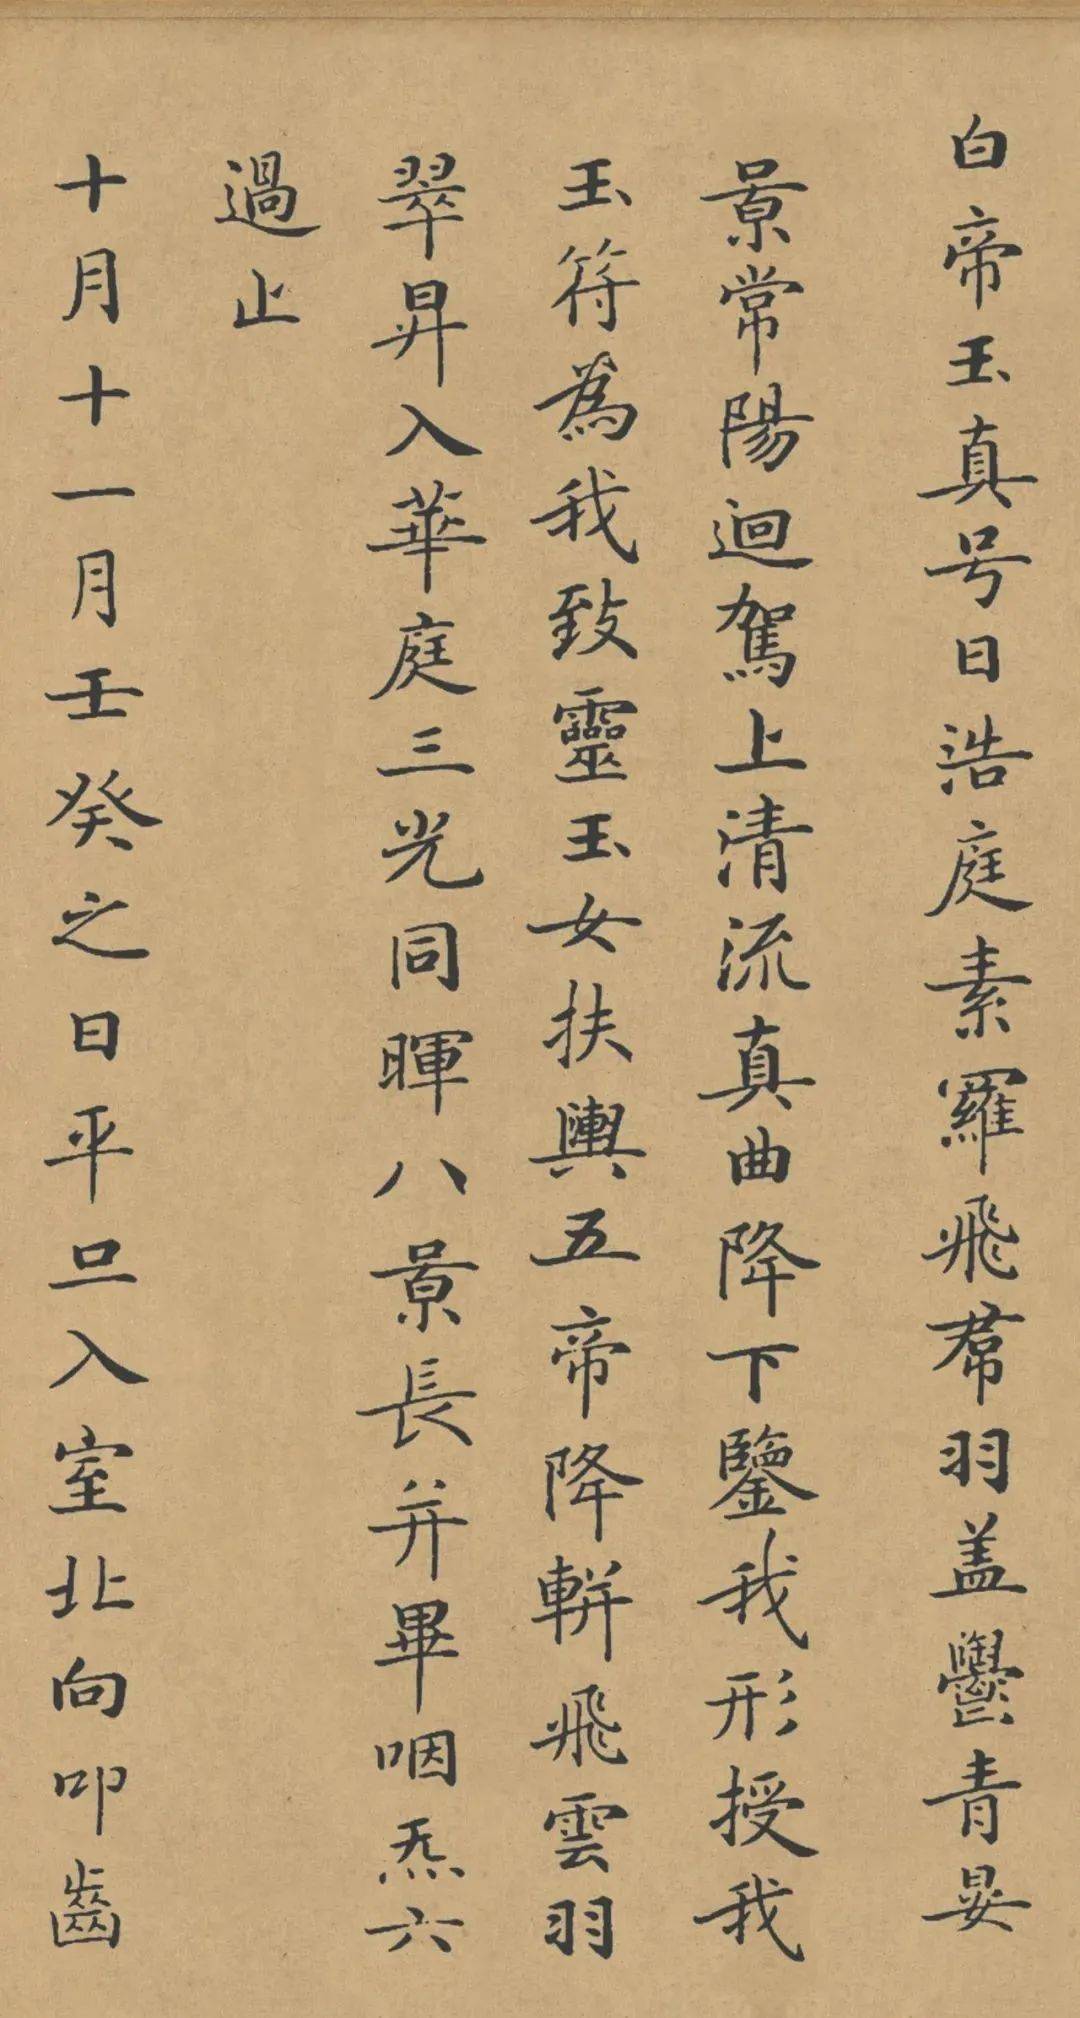 白帝玉真号曰浩庭素羅飛帬羽盖鬱青晏
景常陽迴駕上清流真曲降下鑒我形授我
玉符為我致靈玉女扶輿五帝降軿飛雲羽
翠昇入華庭三光同暉八景長并畢咽炁六
過止
十月十一月壬癸之日平旦入室北向叩齒